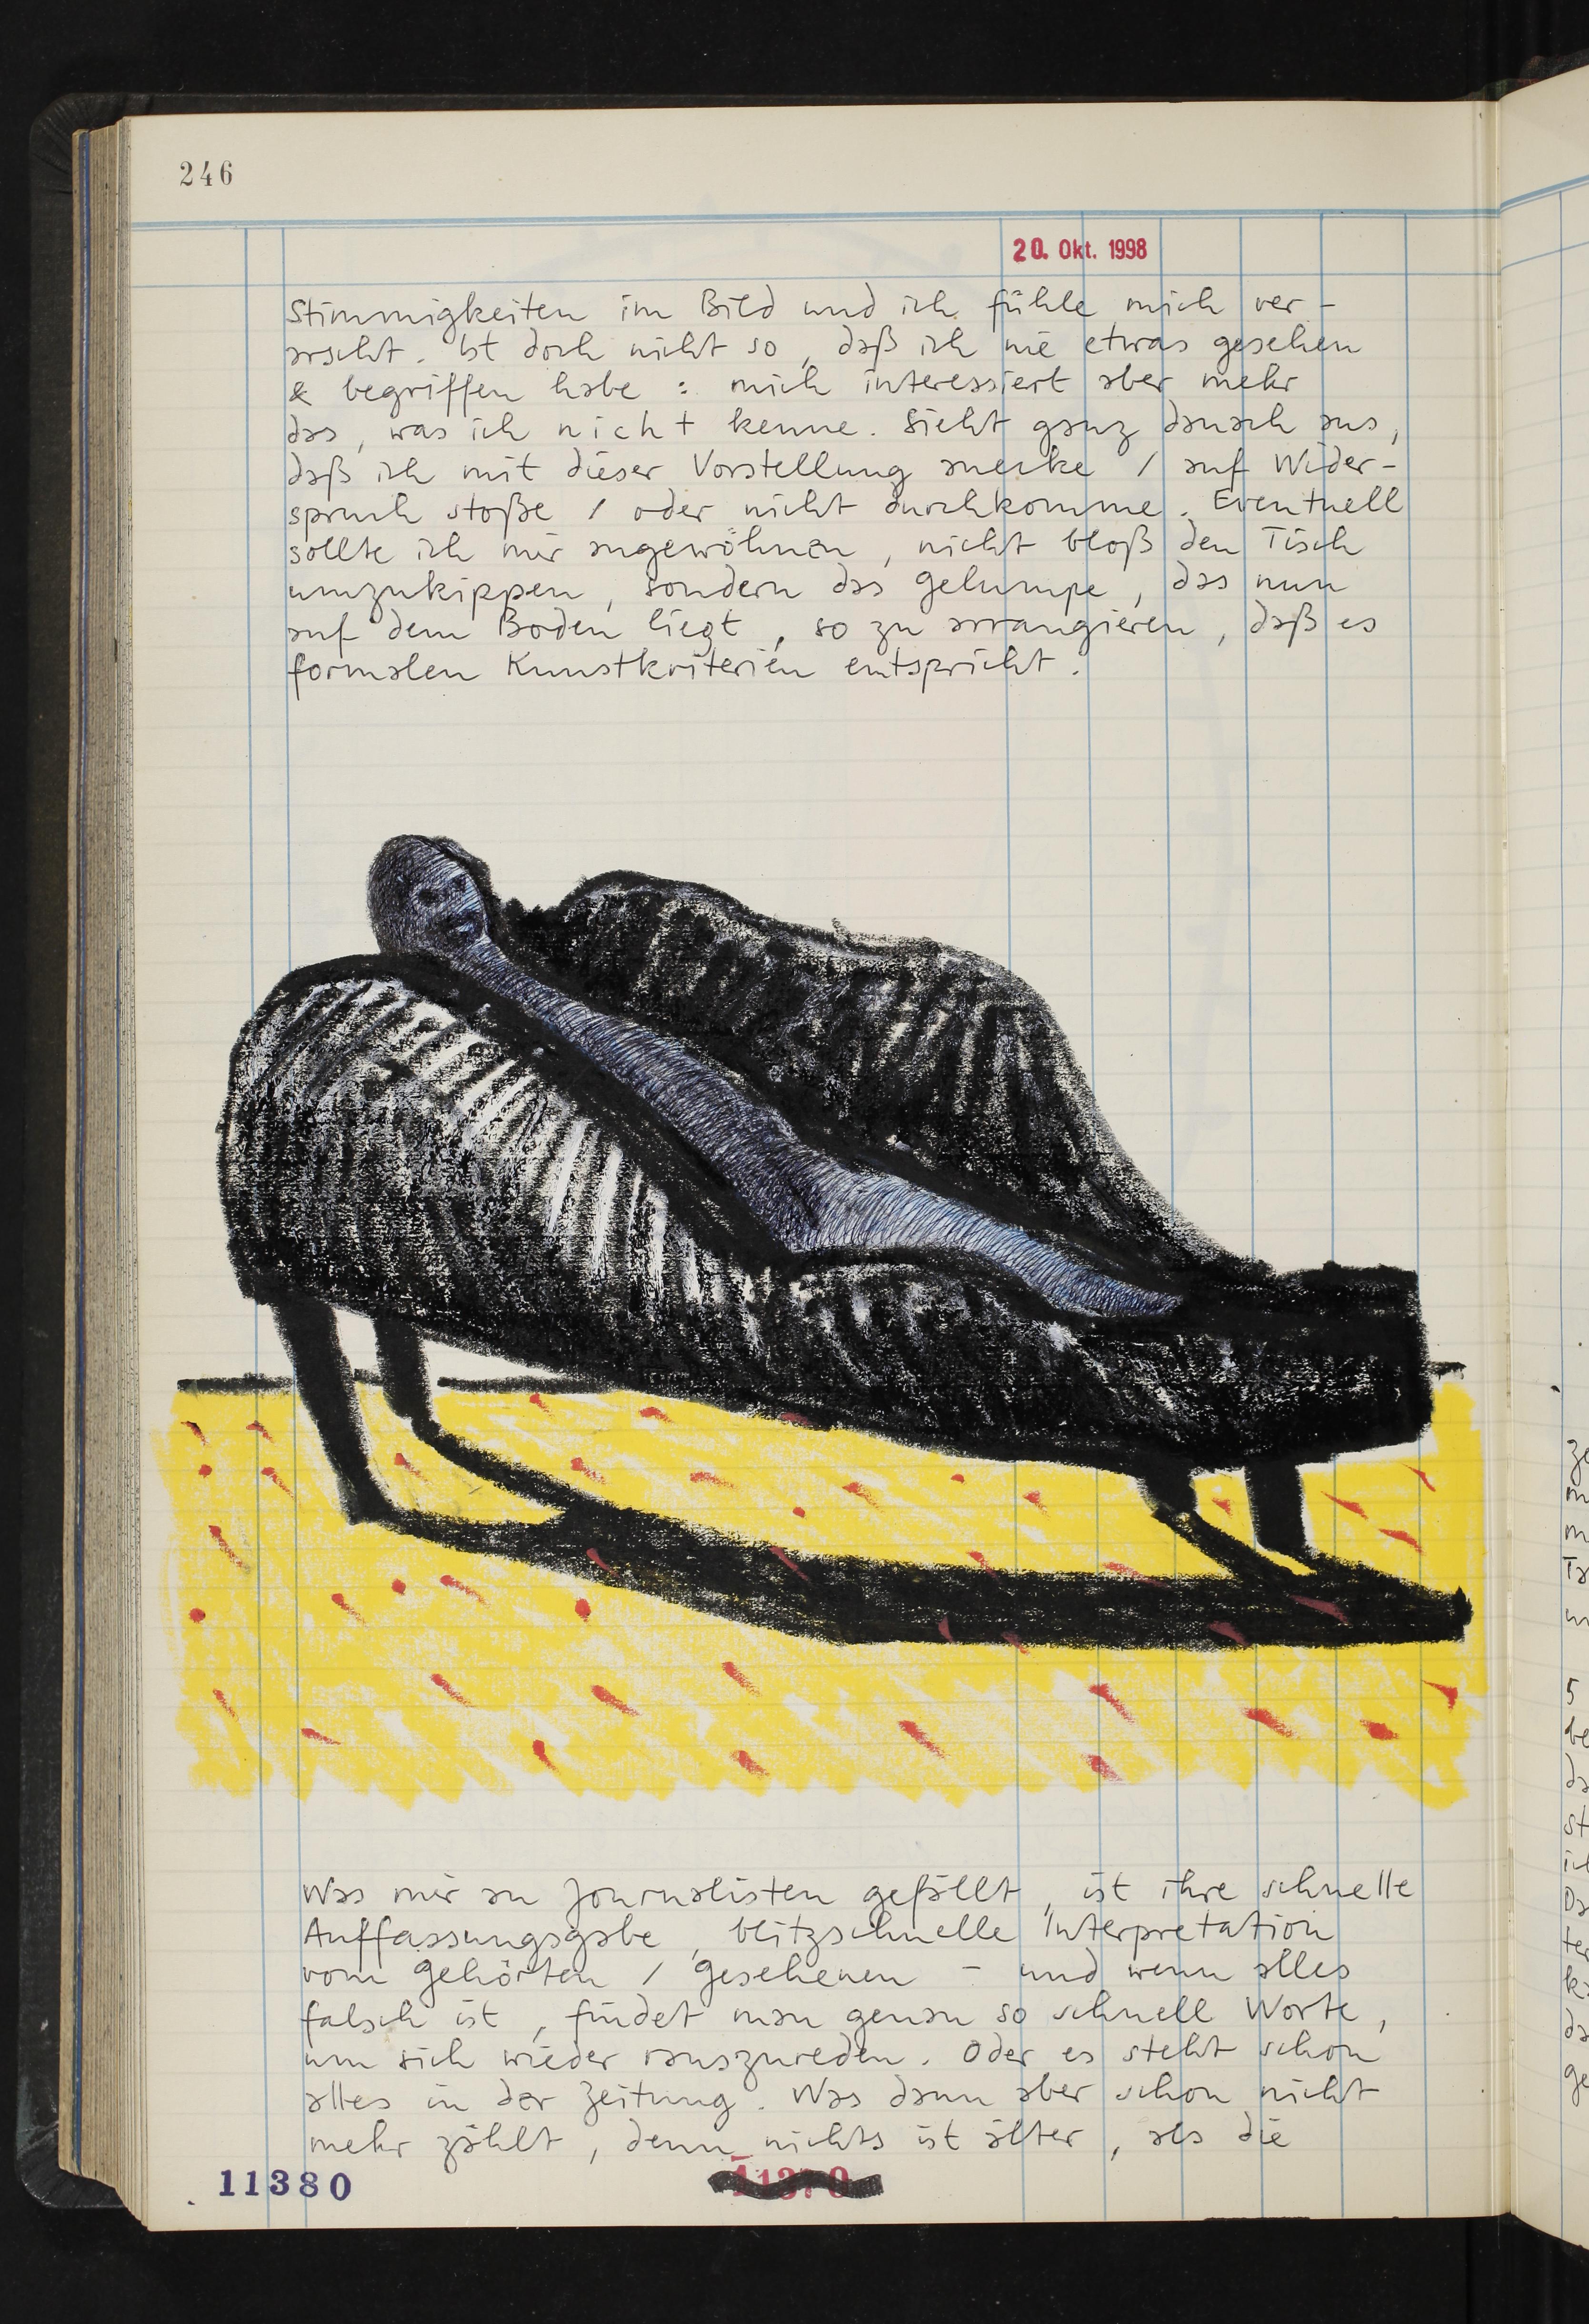 246
20. Okt. 1998
Stimmigkeiten im Bild und ich fühle mich ver-
arscht. Ist doch nicht so, daß ich nie etwas gesehen
& begriffen habe : mich interessiert aber mehr
das, was ich nicht kenne. Sieht ganz danach aus,
daß ich mit dieser Vorstellung anecke / auf Wider-
spruch stoße / oder nicht durchkomme. Eventuell
sollte ich mir angewöhnen, nicht bloß den Tisch
umzukippen, sondern das Gelumpe, das nun
auf dem Boden liegt, so zu arrangieren, daß es
formalen Kunstkriterien entspricht.
Was mir an Journalisten gefällt, ist ihre schnelle
Auffassungsgabe, blitzschnelle Interpretation
vom Gehörten / Gesehenen – und wenn alles
falsch ist, findet man genau so schnell Worte,
um sich wieder rauszureden. Oder es steht schon
alles in der Zeitung. Was dann aber schon nicht
mehr zählt, denn nichts ist älter, als die
11380